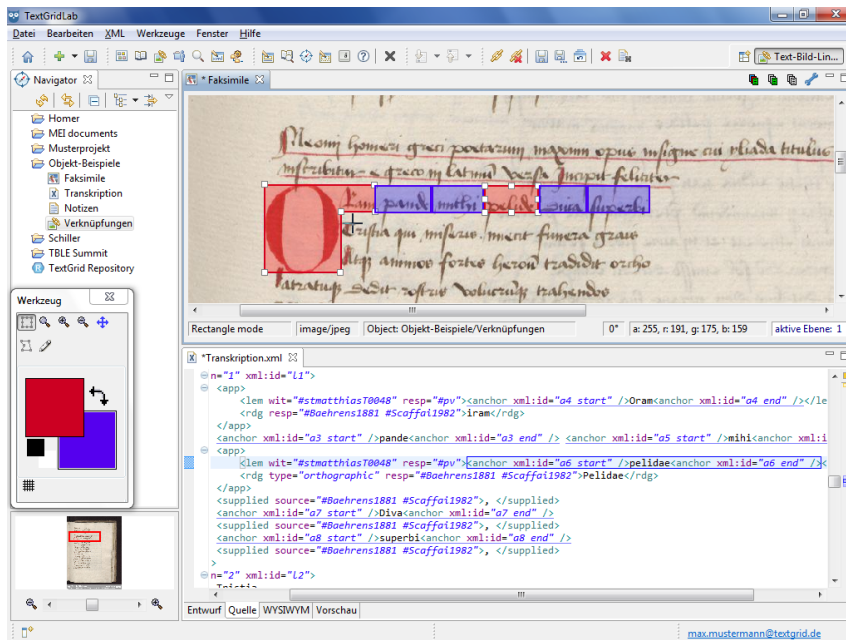 TextGridLab
Datei Bearbeiten XML Werkzeuge Fenster Hilfe
Text-Bild-Lin...
Navigator
Homer
MEI documents
Musterprojekt
Objekt-Beispiele
Faksimile
Transkription
Notizen
Verknüpfungen
Schiller
TBLE Summit
TextGrid Repository
Werkzeug
* Faksimile
homeri greci poetarum
opus
e greco
pande michi pelide
superbi
qui
funera
animos fortes
tradidit
dedit
Rectangle mode image/jpeg Object: Objekt-Beispiele/Verknüpfungen 0° a: 255, r: 191, g: 175, b: 159 aktive Ebene: 1
*Transkription.xml
n="1" xml:id="l1">
<app>
<lem wit="#stmatthiasT0048" resp="#pv"><anchor xml:id="a4 start" />Oram<anchor xml:id="a4 end" /></le
<rdg resp="#Baehrens1881 #Scaffai1982">iram</rdg>
</app>
<anchor xml:id="a3 start" />pande<anchor xml:id="a3 end" /> <anchor xml:id="a5 start" />mihi<anchor xml:i
<app>
<lem wit="#stmatthiasT0048" resp="#pv"><anchor xml:id="a6 start" />pelidae<anchor xml:id="a6 end" /><
<rdg type="orthographic" resp="#Baehrens1881 #Scaffai1982">Pelidae</rdg>
</app>
<supplied source="#Baehrens1881 #Scaffai1982">, </supplied>
<anchor xml:id="a7 start" />Diva<anchor xml:id="a7 end" />
<supplied source="#Baehrens1881 #Scaffai1982">, </supplied>
<anchor xml:id="a8 start" />superbi<anchor xml:id="a8 end" />
<supplied source="#Baehrens1881 #Scaffai1982">, </supplied>
>
n="2" xml:id="l2">
Tristia
Entwurf Quelle WYSIWYM Vorschau
max.mustermann@textgrid.de